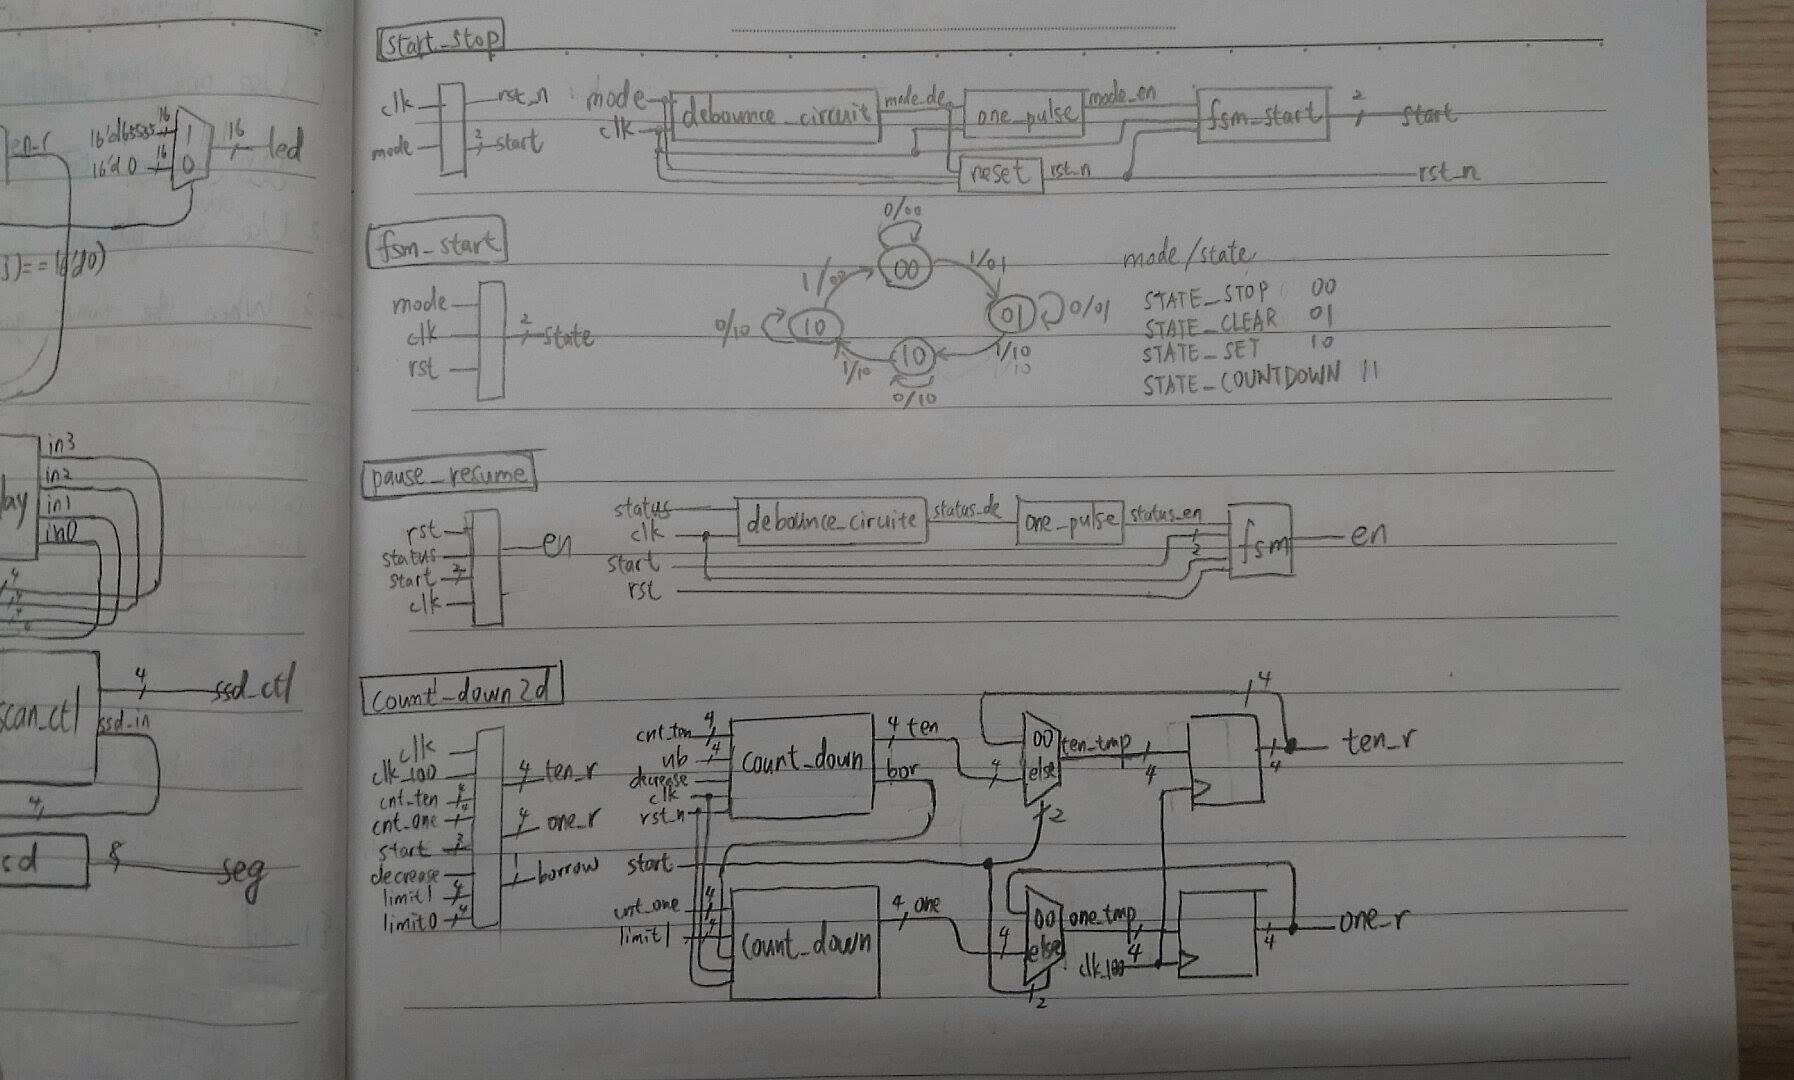 en_r
16'd65535
16
1
16
led
16'd0
16
0
in3
in2
in1
in0
lay
4
scan_ctl
4
ssd_ctl
ssd_in
4
sd
8
seg
start_stop
clk
mode
rst_n
2
start
mode
clk
debounce_circuit
mode_de
one_pulse
mode_en
fsm_start
2
start
reset
rst_n
rst_n
fsm_start
mode
clk
rst
2
state
0/00
00
1/01
01
0/01
1/10
10
10
0/10
1/10
10
0/10
mode/state
STATE_STOP 00
STATE_CLEAR 01
STATE_SET 10
STATE_COUNTDOWN 11
pause_resume
rst
status
start 2
clk
en
status
clk
start
rst
debounce_ciruite
status_de
one_pulse
status_en
2
fsm
en
count_down2d
clk
clk_100
cnt_ten
cnt_one
start 2
decrease
limit1 4
limit0 4
4 ten_r
4 one_r
1 borrow
cnt_ten 4
ub 4
decrease
clk
rst_n
count_down
4 ten
bor
4
00
else
2
ten_tmp
4
4
4
ten_r
start
cnt_one 4
limit1 4
count_down
4 one
4
00
else
2
one_tmp
4
clk_100
4
one_r